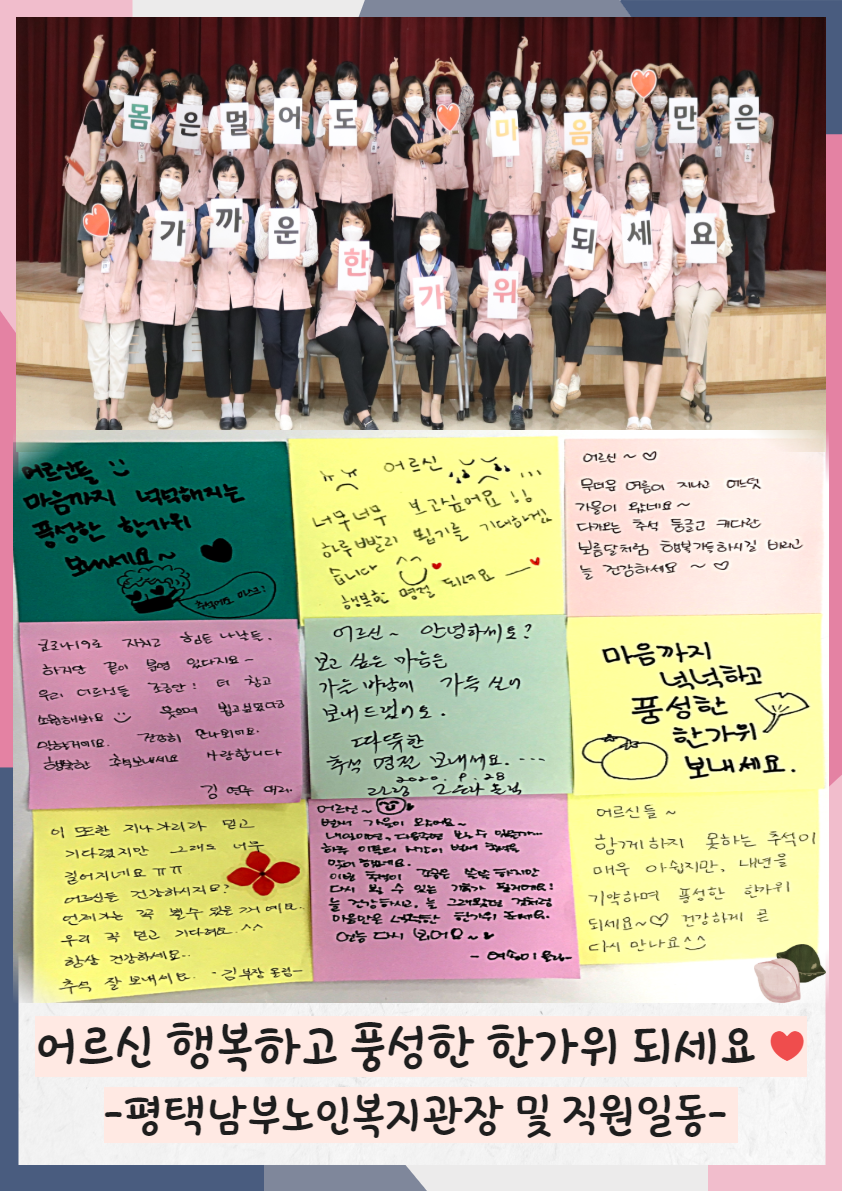 몸은멀어도 마음만은
가까운한가위되세요
어르신들
마음까지 넉넉해지는
풍성한 한가위
보내세요~
추석에도 마스크!
어르신 ...
너무너무 보고싶어요!!
하루빨리 뵙기를 기대하겠
습니다
행복한 명절 되셔요
어르신~♡
무더운 여름이 지나고 어느덧
가을이 왔네요~
다가오는 추석 둥글고 커다란
보름달처럼 행복가득하시길 바라고
늘 건강하세요~♡
코로나19로 지치고 힘든 나날들.
하지만 끝이 분명 있다지요~
우리 어르신들 조금만! 더 참고
건강히 만나뵈어요.
행복한 추석보내세요 사랑합니다
어르신~ 안녕하세요?
보고 싶은 마음은
가을 바람에 가득 실어
보내드립니다.
따뜻한
추석 명절 보내세요....
2020. 9. 28
마음까지
넉넉하고
풍성한
한가위
보내세요.
이 또한 지나가리라 믿고
기다렸지만 그래도 너무
길어지네요 ㅠㅠ
어르신들 건강하시지요?
언젠가는 꼭 뵐수 있을거예요..
우리 꼭 믿고 기다려요..^^
항상 건강하세요..
추석 잘 보내세요. -김부장 올림-
어르신~
벌써 가을이 왔어요~
다시 뵐 수 있는 기회가 될거예요!
마음만은 넉넉한 한가위 보내세요.
어르신들~
함께하지 못하는 추석이
매우 아쉽지만, 내년을
기약하며 풍성한 한가위
되세요~♡ 건강하게 곧
다시 만나요^^
어르신 행복하고 풍성한 한가위 되세요 ♥
-평택남부노인복지관장 및 직원일동-